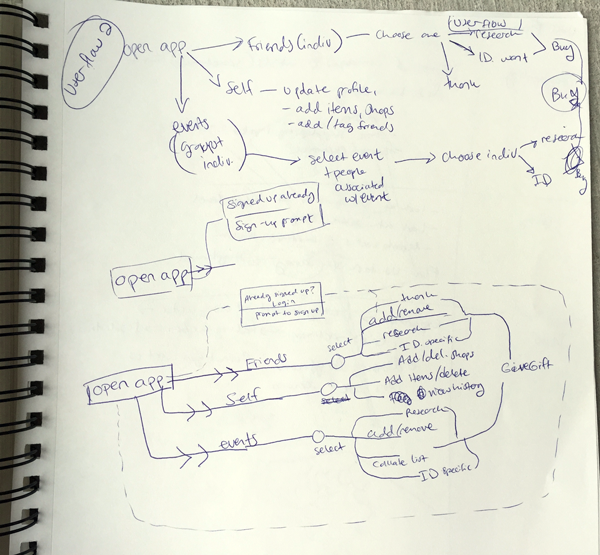 User flow 2
open app
Friends (indiv)
Choose one
User flow 1
research
I.D. want
Buy
Buy
thank
Self — update profile,
- add items, shops
- add/tag friends
events
(group +
indiv.
select event
+ people
associated
w/ event
Choose indiv
research
ID
Buy
Signed up already
Sign-up prompt
open app
Already signed up?
Login
Prompt to sign up
thank
add/remove
research
I.D. specific
select
Friends
open app
Add/del. shops
Self
select
Add items/delete
view history
Give Gift
events
select
Research
add/remove
Collate list
ID specific